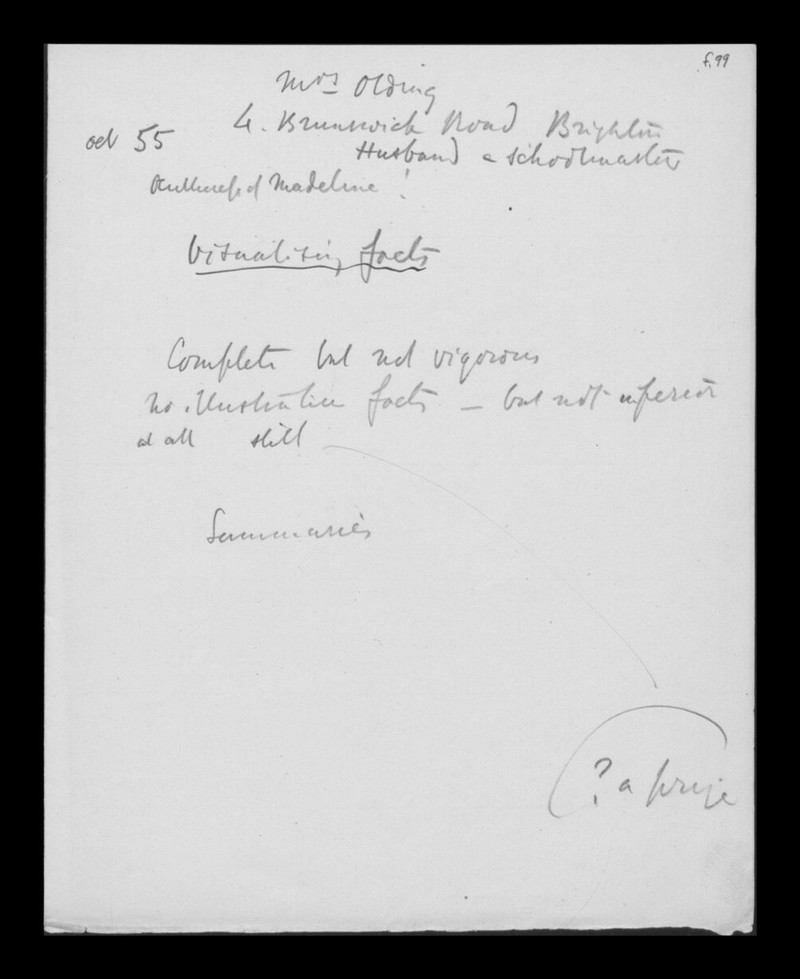 f. 99
Mrs Olding
4. Brunswick Road Brighton
aet 55
Husband a schoolmaster
Authoress of Madeline !
Visualising facts
Complete but not vigorous
no illustrative facts — but not inferior
at all still
Summaries
? a prize